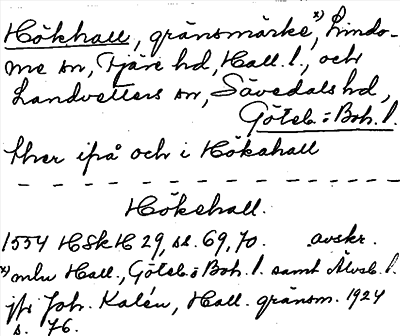 Hökhall, gränsmärke, x) Lindo-
me sn, Fjäre hd, Hall. l., och
Landvetters sn, Sävedals hd,
Göteb. o Boh. l.
ther ifrå och i Hökahall
Hökehall.
1554 HSkH 29, ss. 69, 70. avskr.
x) mln Hall., Göteb. o Boh. l. samt Älvsb. l.
jfr Joh. Kalén, Hall. gränsm. 1924
s. 76.